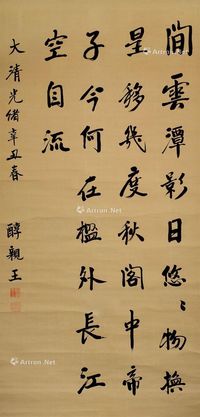 閒雲潭影日悠〻物換
星移幾度秋閣中帝
子今何在檻外長江
空自流
大清光緒辛丑春 醇親王